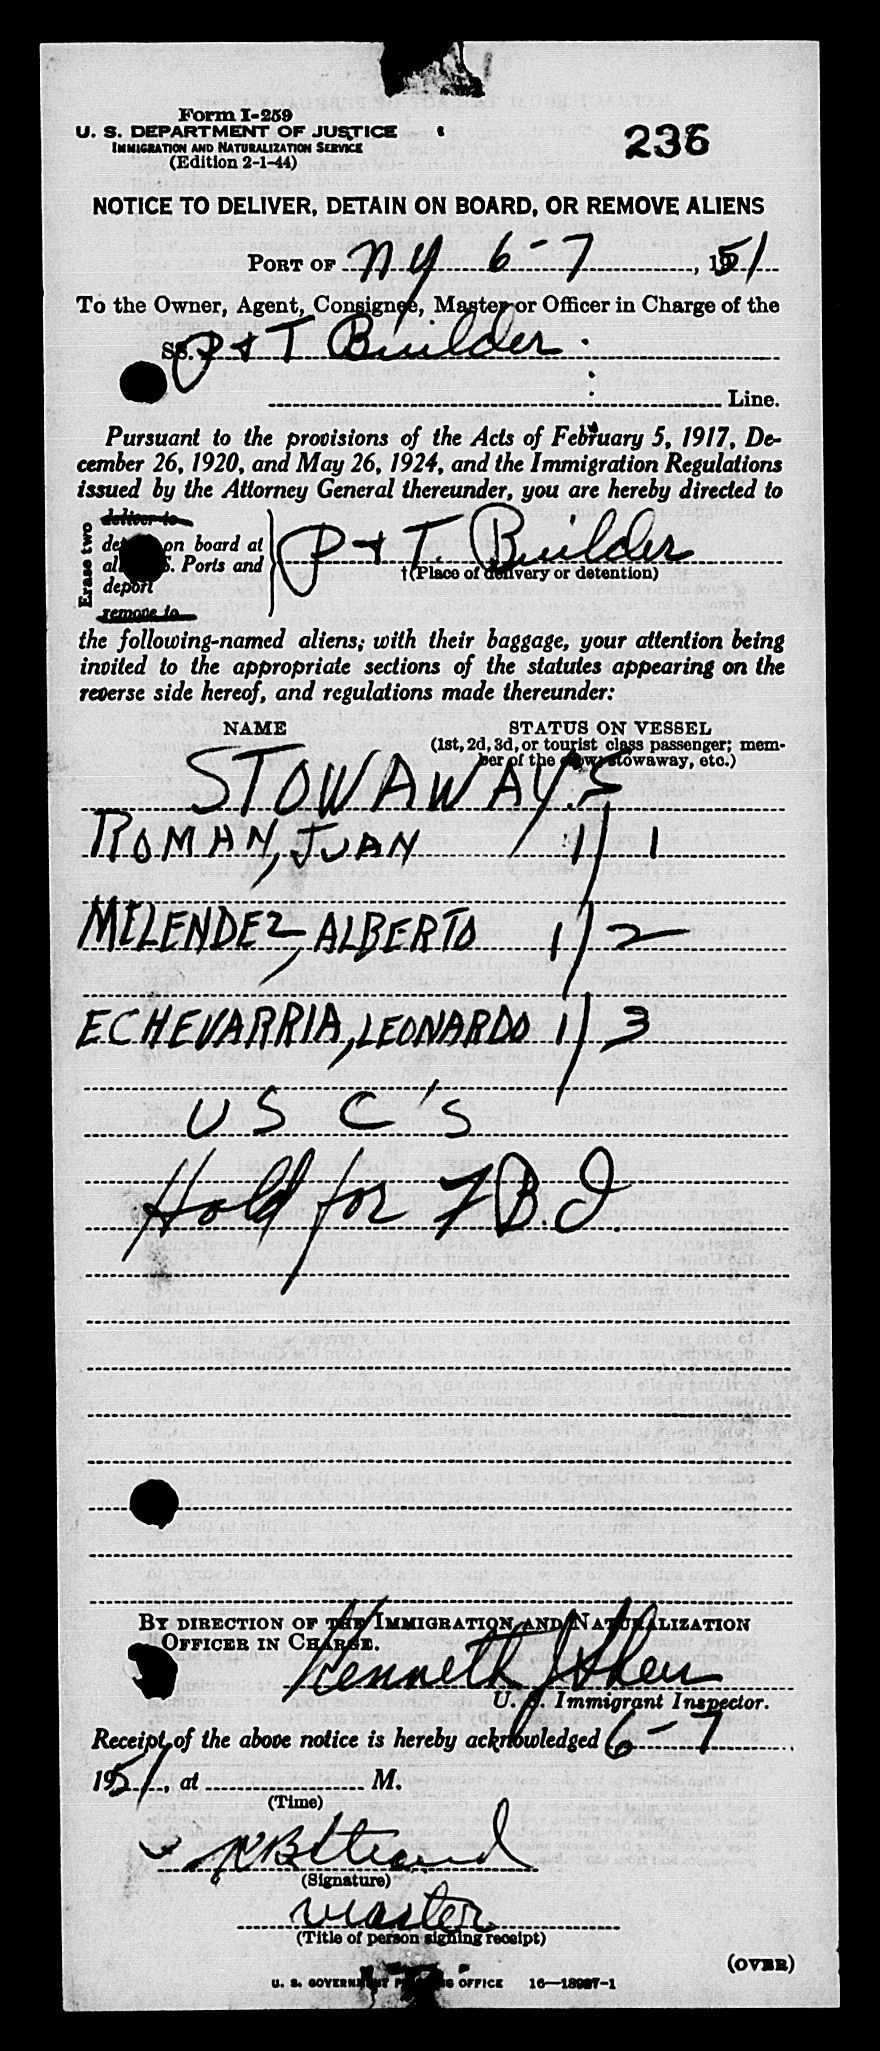 Form I-259
U. S. DEPARTMENT OF JUSTICE
IMMIGRATION AND NATURALIZATION SERVICE
(Edition 2-1-44)
236
NOTICE TO DELIVER, DETAIN ON BOARD, OR REMOVE ALIENS
PORT OF NY 6-7, 1951
To the Owner, Agent, Consignee, Master or Officer in Charge of the
SS. P & T Builder
Line.
Pursuant to the provisions of the Acts of February 5, 1917, De-
cember 26, 1920, and May 26, 1924, and the Immigration Regulations
issued by the Attorney General thereunder, you are hereby directed to
Erase two
deliver to
on board at
S. Ports and
deport
remove to
P & T. Builder
†(Place of delivery or detention)
the following-named aliens; with their baggage, your attention being
invited to the appropriate sections of the statutes appearing on the
reverse side hereof, and regulations made thereunder:
NAME STATUS ON VESSEL
(1st, 2d, 3d, or tourist class passenger; mem-
ber of the crew, stowaway, etc.)
STOWAWAY'S
ROMAN, JUAN 1/1
MELENDEZ, ALBERTO 1/2
ECHEVARRIA, LEONARDO 1/3
U S C's
Hold for F.B.I.
BY DIRECTION OF THE IMMIGRATION AND NATURALIZATION
OFFICER IN CHARGE.
Kenneth J
U. S. Immigrant Inspector.
Receipt of the above notice is hereby acknowledged 6-7
1951, at M.
(Time)
(Signature)
Master
(Title of person signing receipt)
(OVER)
U. S. GOVERNMENT PRINTING OFFICE 16—18987-1